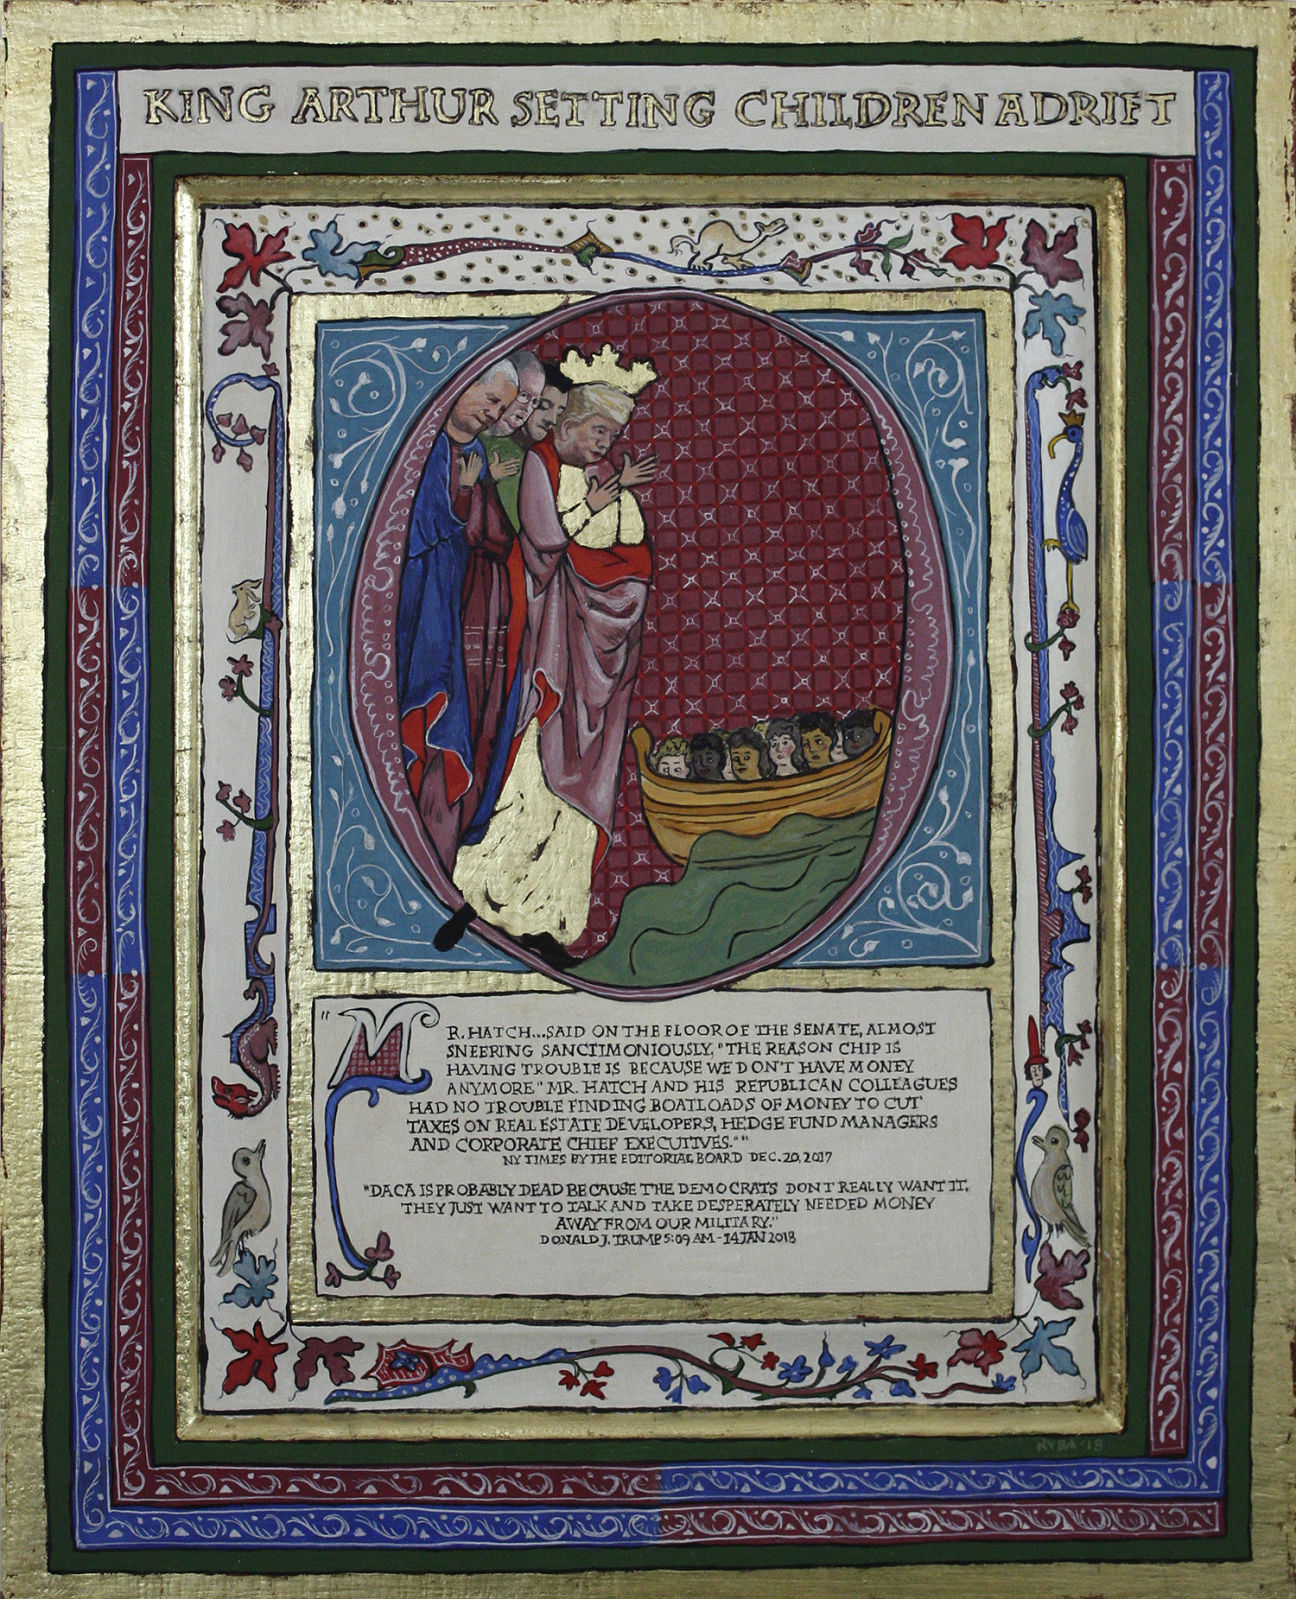 KING ARTHUR SETTING CHILDREN ADRIFT
"MR. HATCH...SAID ON THE FLOOR OF THE SENATE, ALMOST
SNEERING SANCTIMONIOUSLY, "THE REASON CHIP IS
HAVING TROUBLE IS BECAUSE WE DON'T HAVE MONEY
ANYMORE" MR. HATCH AND HIS REPUBLICAN COLLEAGUES
HAD NO TROUBLE FINDING BOATLOADS OF MONEY TO CUT
TAXES ON REAL ESTATE DEVELOPERS, HEDGE FUND MANAGERS
AND CORPORATE CHIEF EXECUTIVES.""
NY TIMES BY THE EDITORIAL BOARD DEC. 20, 2017
"DACA IS PROBABLY DEAD BECAUSE THE DEMOCRATS DON'T REALLY WANT IT,
THEY JUST WANT TO TALK AND TAKE DESPERATELY NEEDED MONEY
AWAY FROM OUR MILITARY."
DONALD J. TRUMP 5:09 AM - 14 JAN 2018
RYBA '18